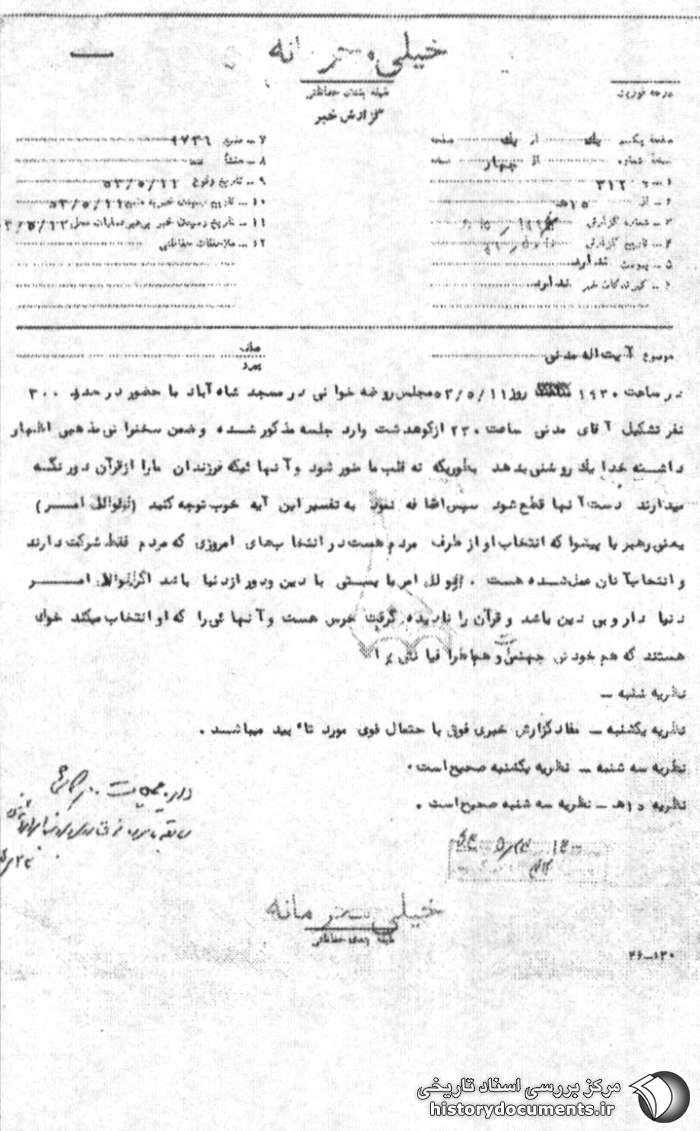 خیلی محرمانه
طبقه بندی حفاظتی
درجه فوریت
گزارش خبر
صفحه یکم یک از یک صفحه
نسخه شماره از چهار نسخه
۱ ـ به ۳۱۲
۲ ـ از ۱۵ هـ
۳ ـ شماره گزارش
۴ ـ تاریخ گزارش
۵ ـ پیوست ندارد
۶ ـ گیرندگان خبر ندارد
۷ ـ منبع ۹۷۳۶
۸ ـ منشأ
۹ ـ تاریخ وقوع ۵۳/۵/۱۱
۱۰ ـ تاریخ رسیدن خبر به منبع ۵۳/۵/۱۱
۱۱ ـ تاریخ رسیدن خبر برهبر عملیات محل ۵۳/۵/۱۲
۱۲ ـ ملاحظات حفاظتی
موضوع آیت اله مدنی
در ساعت ۱۹۳۰ روز ۵۳/۵/۱۱ مجلس روضه خوانی در مسجد شاه آباد با حضور در حدود ۳۰۰
نفر تشکیل آقای مدنی ساعت ۲۳۰ از کوهدشت وارد جلسه مذکور شده و ضمن سخنرانی مذهبی اظهار
داشته خدا یک روشنی بدهد بطوریکه ته قلب ما منور شود و آنهائیکه فرزندان ما را از قرآن دور نگه
میدارند دست آنها قطع شود سپس اضافه نمود به تفسیر این آیه خوب توجه کنید (اولوالامر)
یعنی رهبر یا پیشوا که انتخاب او از طرف مردم هست در انتخابهای امروزی که مردم فقط شرکت دارند
و انتخاب آنان عمل شده هست . اولوالامر بایستی با دین و دور از دنیا باشد اگر اولوالامر
دنیا دار و بی دین باشد و قرآن را نادیده گرفت خرس هست و آنهائی را که او انتخاب میکند خوک
هستند که هم خودش جهنمی و هم اطرافیانش
نظریه شنبه ـ
نظریه یکشنبه ـ مفاد گزارش خبری فوق با احتمال قوی مورد تائید میباشد .
نظریه سه شنبه ـ نظریه یکشنبه صحیح است .
نظریه ۱۵ هـ ـ نظریه سه شنبه صحیح است .
خیلی محرمانه
طبقه بندی حفاظتی
۲۶ـ۱۳۰
مرکز بررسی اسناد تاریخی
historydocuments.ir